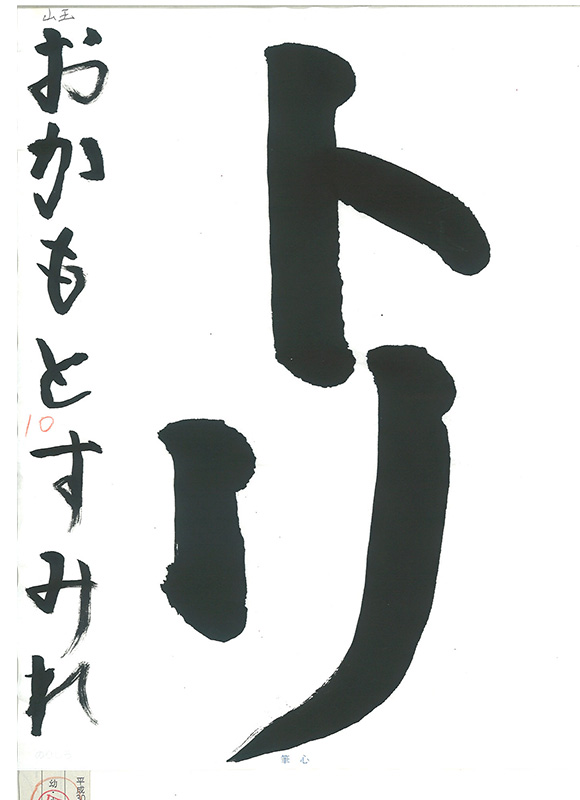 トリ
山王
おかもとすみれ
10
筆心
平成30
幼